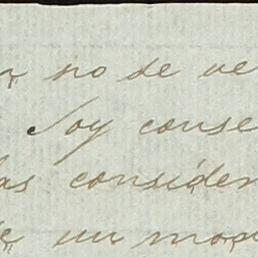 no de ve
Soy conse
as consider
un mod